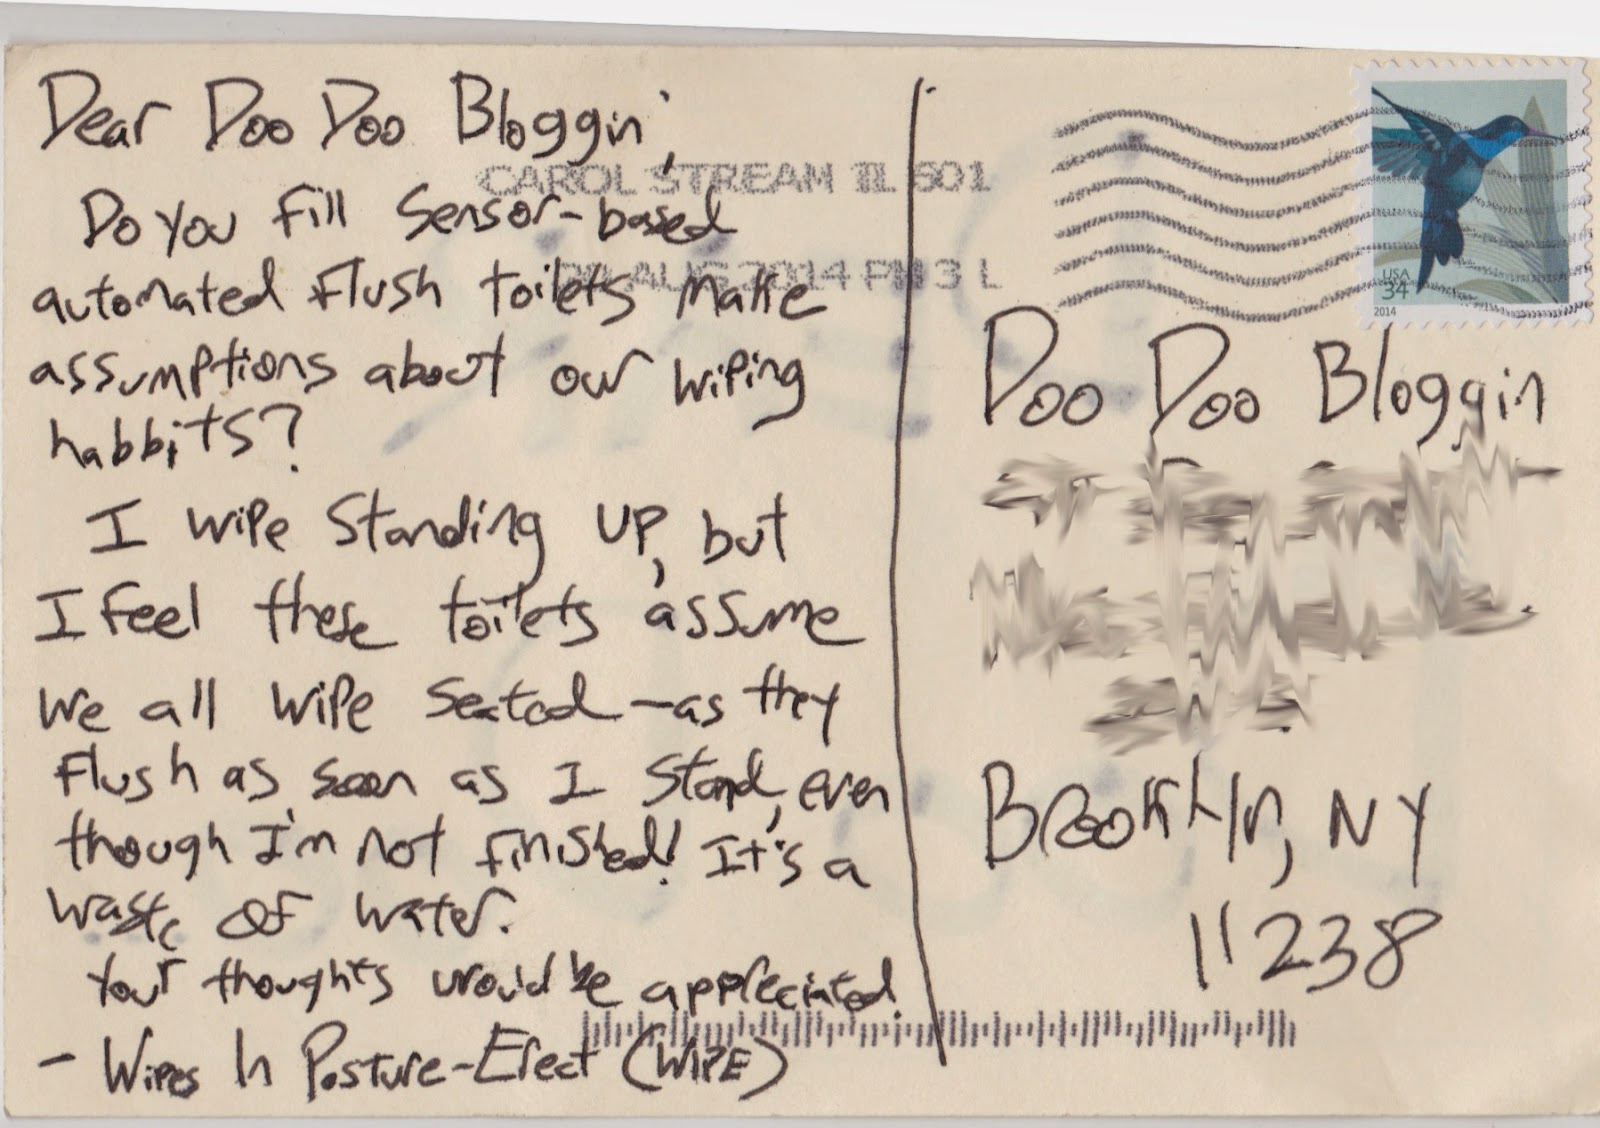 Dear Doo Doo Bloggin',
Do you fill sensor-based
automated flush toilets make
assumptions about our wiping
habbits?
I wipe standing up, but
I feel these toilets assume
we all wipe seated - as they
flush as soon as I stand, even
though I'm not finished! It's a
waste of water.
Your thoughts would be appreciated.
- Wipes In Posture-Erect (WIPE)
CAROL STREAM IL 601
AUG 2014 PM 3 L
USA
34
2014
Doo Doo Bloggin
Brooklyn, NY
11238